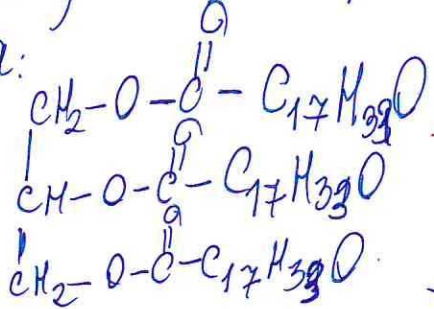 CH₂-O-C(=O)-C₁₇H₃₃O
CH-O-C(=O)-C₁₇H₃₃O
CH₂-O-C(=O)-C₁₇H₃₃O